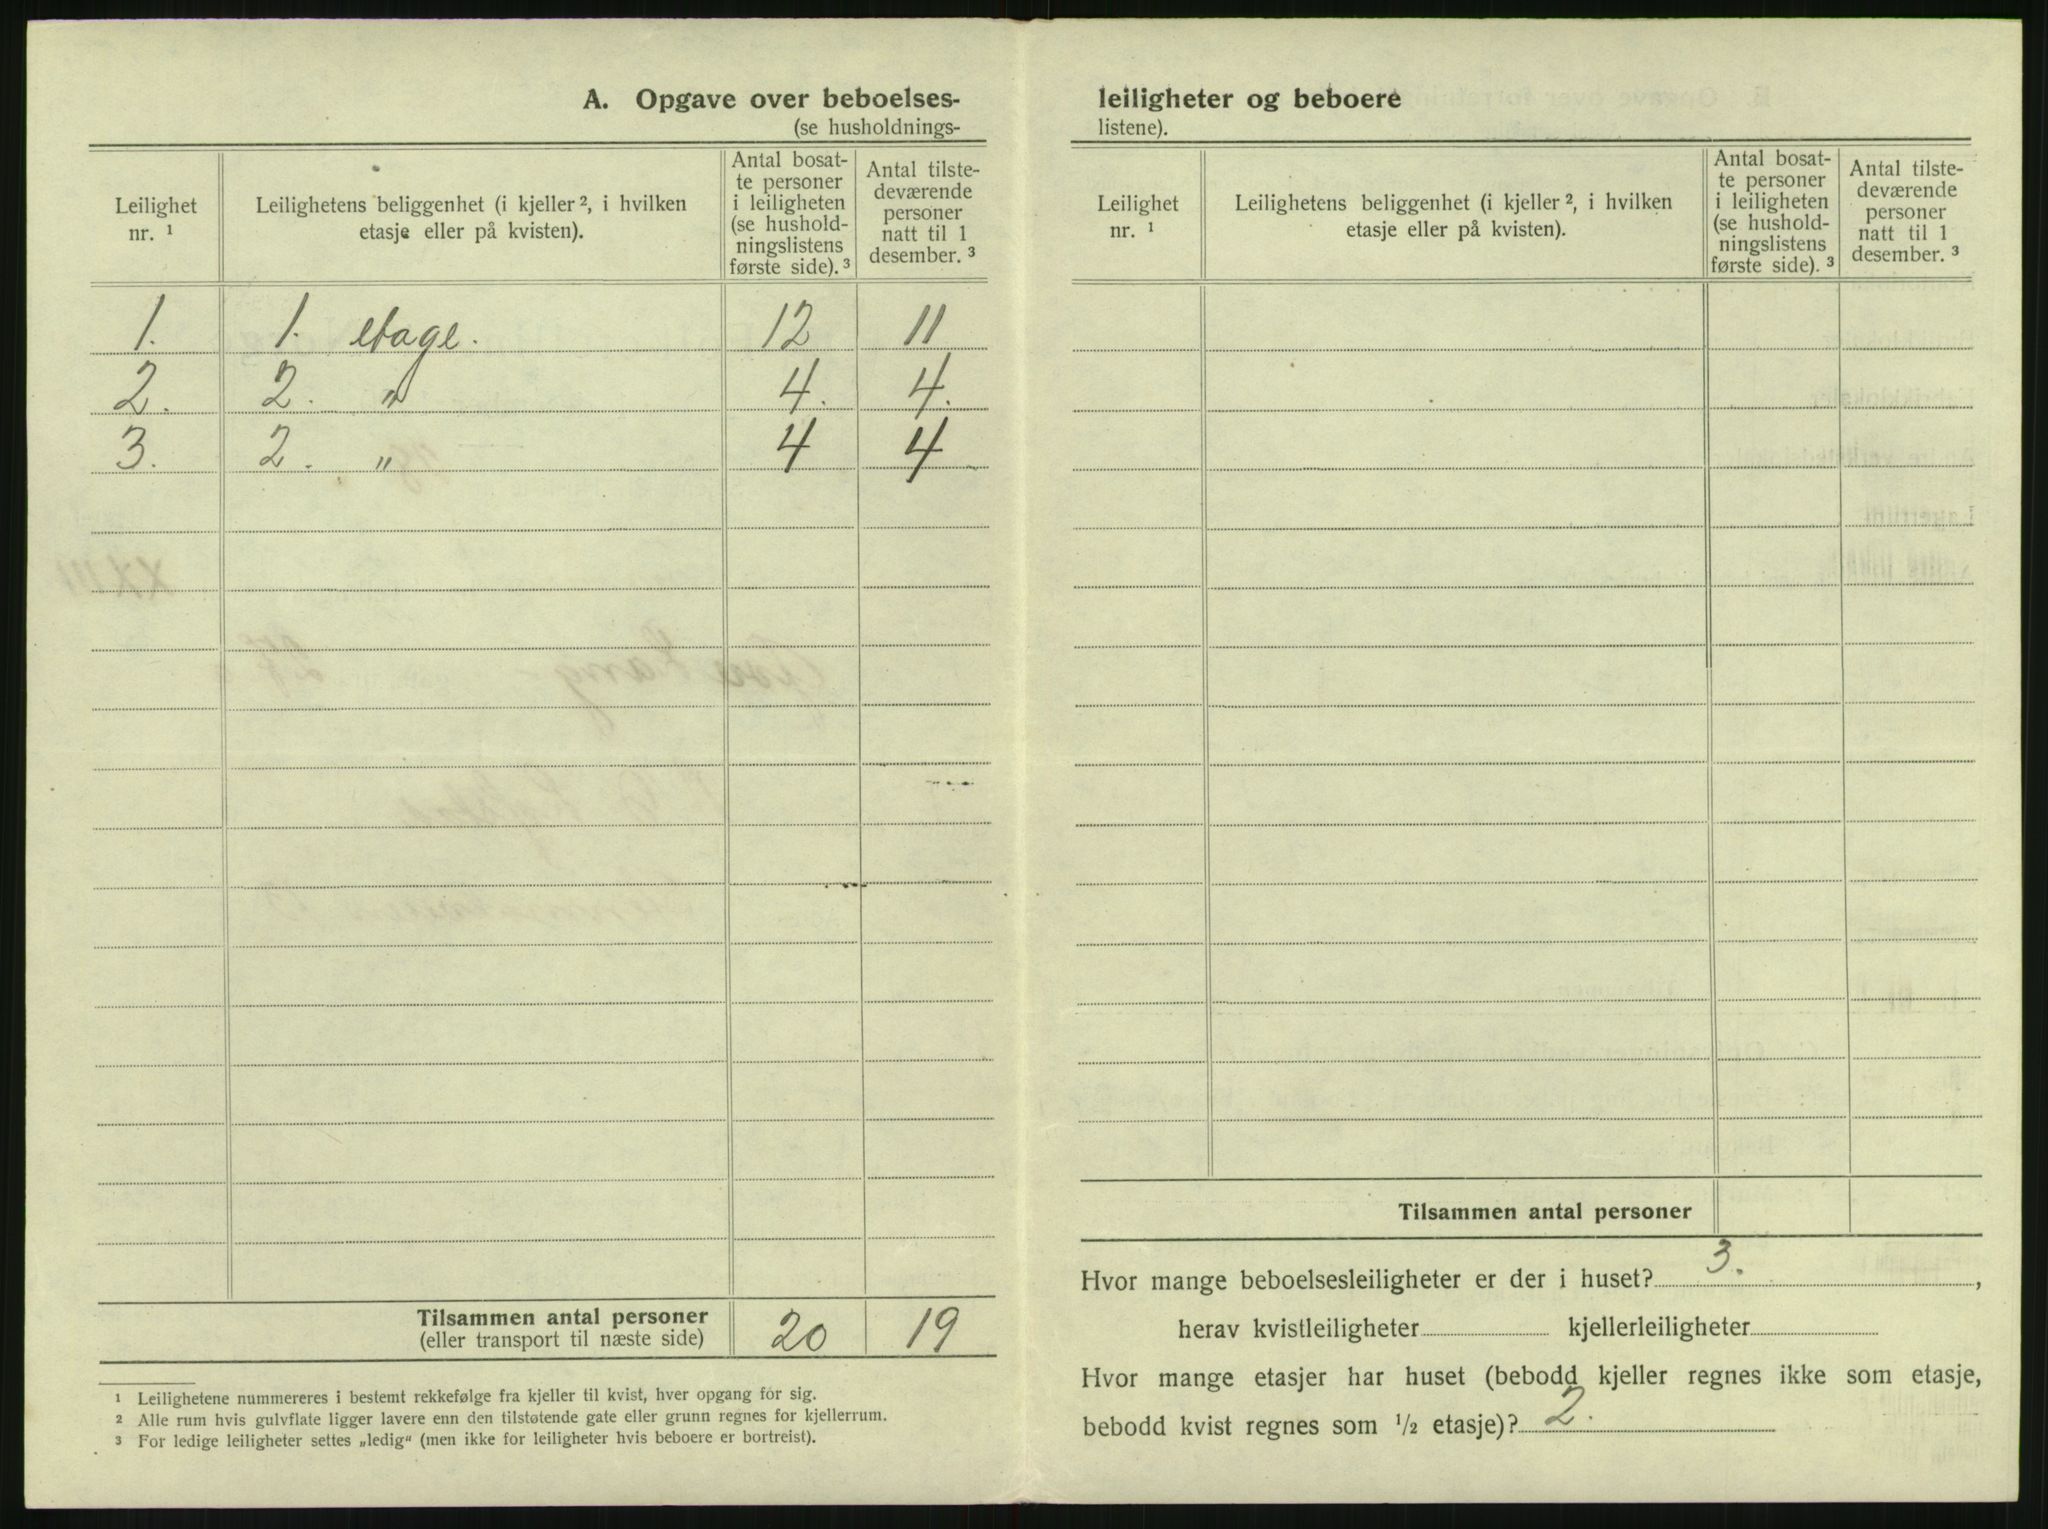 A. Opgave over beboelses-
(se husholdnings-
Leilighet nr. ¹
Leilighetens beliggenhet (i kjeller ², i hvilken etasje eller på kvisten).
Antal bosat-
te personer
i leiligheten
(se hushold-
ningslistens
første side). ³
Antal tilste-
deværende
personer
natt til 1
desember. ³
1. 1. etage. 12 11
2. 2. " 4. 4.
3. 2. " 4 4
Tilsammen antal personer 20 19
(eller transport til næste side)
¹ Leilighetene nummereres i bestemt rekkefølge fra kjeller til kvist, hver opgang for sig.
² Alle rum hvis gulvflate ligger lavere enn den tilstøtende gate eller grunn regnes for kjellerrum.
³ For ledige leiligheter settes „ledig“ (men ikke for leiligheter hvis beboere er bortreist).
leiligheter og beboere
listene).
Leilighet nr. ¹
Leilighetens beliggenhet (i kjeller ², i hvilken etasje eller på kvisten).
Antal bosat-
te personer
i leiligheten
(se hushold-
ningslistens
første side). ³
Antal tilste-
deværende
personer
natt til 1
desember. ³
Tilsammen antal personer
Hvor mange beboelsesleiligheter er der i huset? 3. ,
herav kvistleiligheter kjellerleiligheter
Hvor mange etasjer har huset (bebodd kjeller regnes ikke som etasje,
bebodd kvist regnes som ½ etasje)? 2.